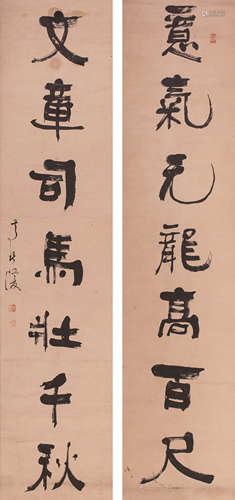 意氣元龍高百尺
文章司馬壯千秋